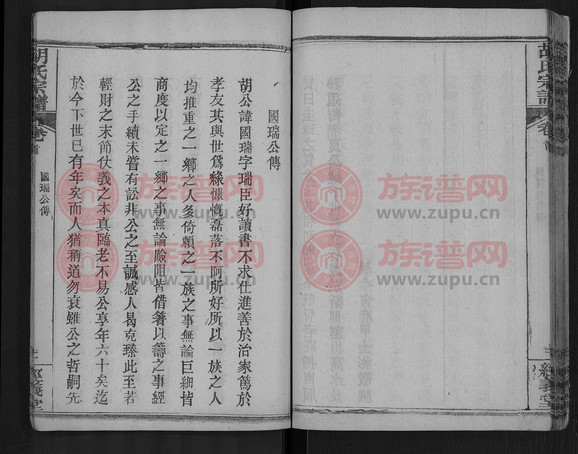 胡氏宗譜
卷首
經義堂
國瑞公傳
胡公諱國瑞字瑞臣好讀書不求仕進善於治家篤於
孝友其與世爲緣慷慨磊落不阿所好所以一族之人
均推重之一鄉之人多倚賴之一族之事無論巨細皆
商度以定之一鄉之事無論險阻皆借箸以籌之事經
公之手績未嘗有訟非公之至誠感人曷克臻此至若
輕財之末節仗義之本真臨老不易公享年六十矣迄
於今下世已有年矣而人猶稱道勿衰雖公之哲嗣先
胡氏宗譜
卷首
國瑞公傳
族谱网
www.zupu.cn
族谱网
www.zupu.cn
族谱网
www.zupu.cn
族谱网
www.zupu.cn